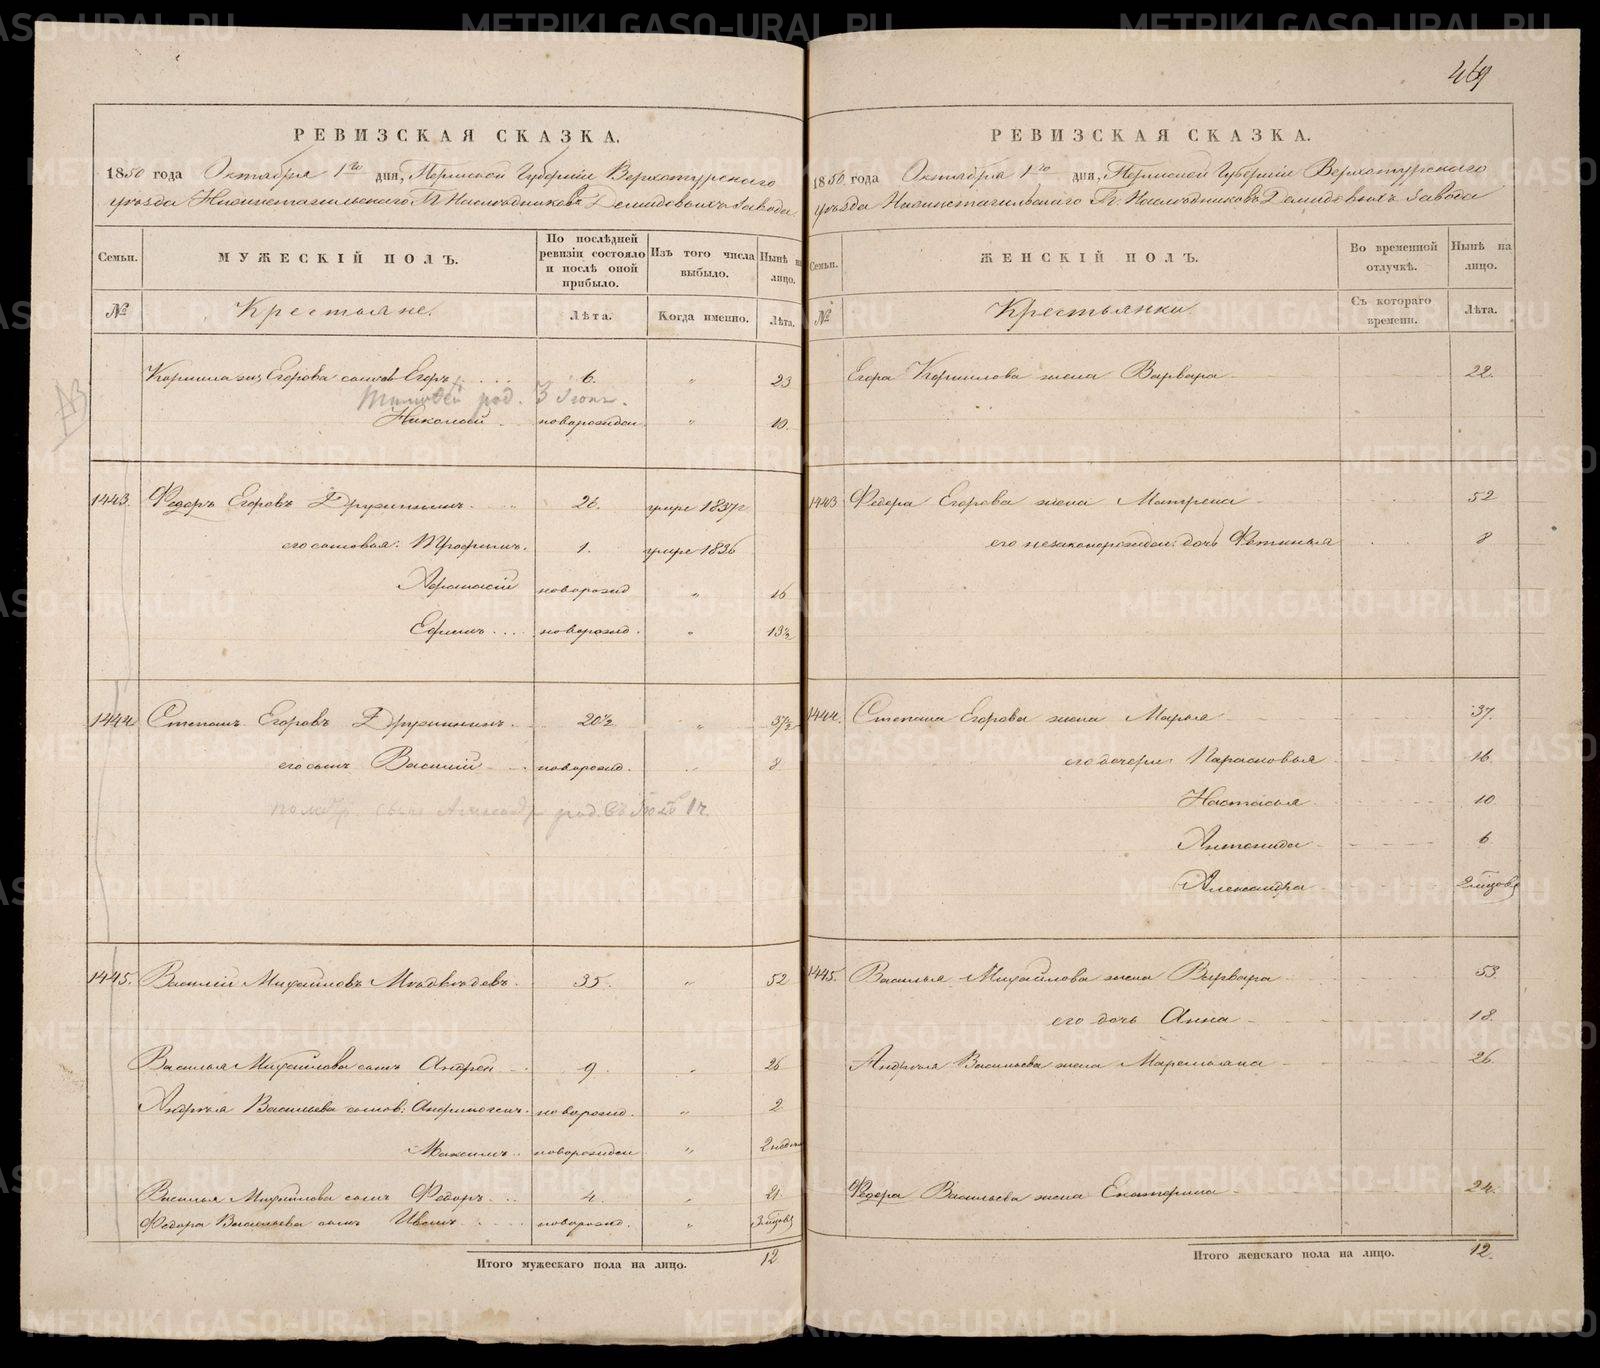 469
РЕВИЗСКАЯ СКАЗКА.
1850 года Октября 1го дня, Пермской Губернiи Верхотурскаго
уѣзда Нижнетагильскаго Г. Наслѣдниковъ Демидовыхъ Завода
Семьи. МУЖЕСКIЙ ПОЛЪ. По послѣдней ревизiи состояло и послѣ оной прибыло. Изъ того числа выбыло. Нынѣ на лицо.
№ Крестьяне. Лѣта. Когда именно. Лѣта.
Егорова сынов Егоръ 6. " 23
род. 3 Iюня.
Николай новорожден " 10.
1443. Федоръ Егоровъ Дружининъ. 26. умре 1837г
его сыновья: Трофимъ. 1. умре 1836
Афанасiй новорожд " 16
Ефимъ новорожд. " 13½
1444 Степанъ Егоровъ Дружининъ. 20½ " 37½
его сынъ Василiй новорожд. " 8
сынъ Александр род. 1г.
1445. Василiй Михайловъ Мѣдвѣдевъ. 35. " 52
Василья Михайлова сынъ Андрей 9 " 26
Андрѣя Васильева сынов: Анфиногенъ. новорожд. " 2
Максимъ новорожден " 2 недѣли
Василья Михайлова сынъ Федоръ 4. " 21
Федора Васильева сынъ Иванъ новорожд. " 3 мѣсяцов
Итого мужескаго пола на лицо. 12
РЕВИЗСКАЯ СКАЗКА.
1850 года Октября 1го дня, Пермской Губернiи Верхотурскаго
уѣзда Нижнетагильскаго Г. Наслѣдниковъ Демидовыхъ Завода
Семьи. ЖЕНСКIЙ ПОЛЪ. Во временной отлучкѣ. Нынѣ на лицо.
№ Крестьянки Съ котораго времени. Лѣта.
Егора Корнилова жена Варвара 22.
1443 Федора Егорова жена Матрена 52
его незаконорожден: дочь Фетинья 8
1444. Степана Егорова жена Марья 37.
его дочери: Парасковья 16.
Настасья 10
Антонида 6
Александра 2 мѣсяцов
1445. Василья Михайлова жена Варвара 53.
его дочь Анна 18.
Андрѣя Васильева жена Маремьяна 26.
Федора Васильева жена Екатерина 24.
Итого женскаго пола на лицо. 12.
METRIKI.GASO-URAL.RU